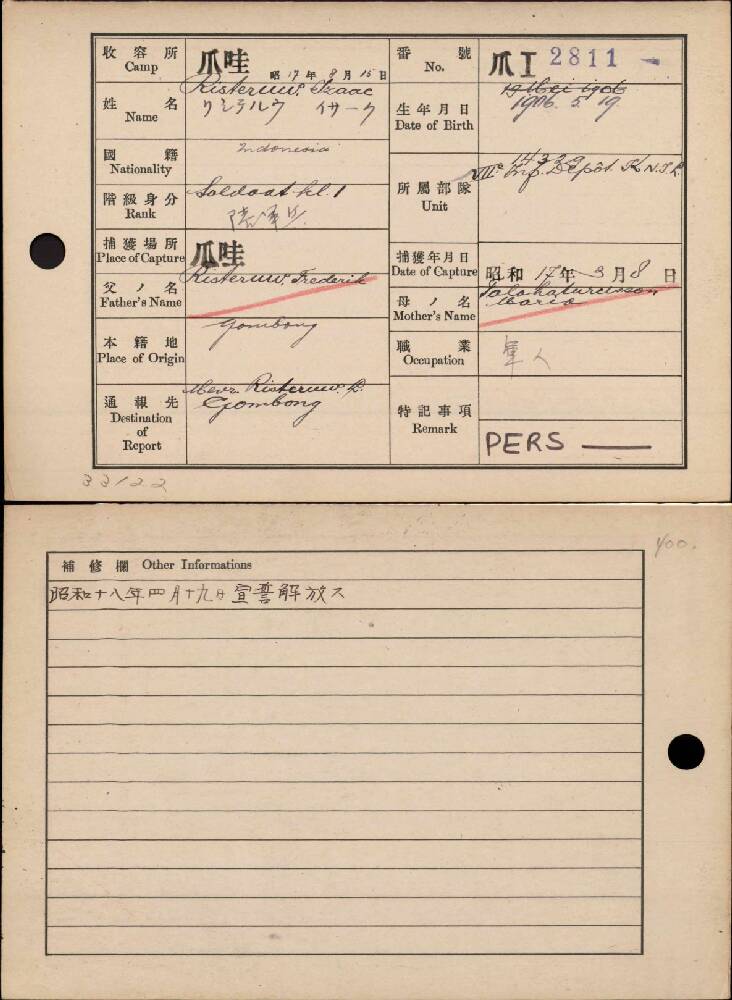 收容所 Camp
爪哇
昭17年8月15日
番號 No.
爪I 2811
姓名 Name
Risteruw. Izaac
リシテルウ イサーク
生年月日 Date of Birth
19 Mei 1906
1906. 5. 19.
國籍 Nationality
Indonesia
所屬部隊 Unit
14329
VIIIe Inf. Depôt K.N.I.L.
階級身分 Rank
Soldaat kl. 1
捕獲場所 Place of Capture
爪哇
捕獲年月日 Date of Capture
昭和17年3月8日
父ノ名 Father's Name
Risteruw. Frederik
母ノ名 Mother's Name
Maria
本籍地 Place of Origin
Gombong
職業 Occupation
軍人
通報先 Destination of Report
Mevr. Risteruw.
Gombong
特記事項 Remark
PERS
33122
400.
補修欄 Other Informations
昭和十八年四月十九日宣誓解放ス